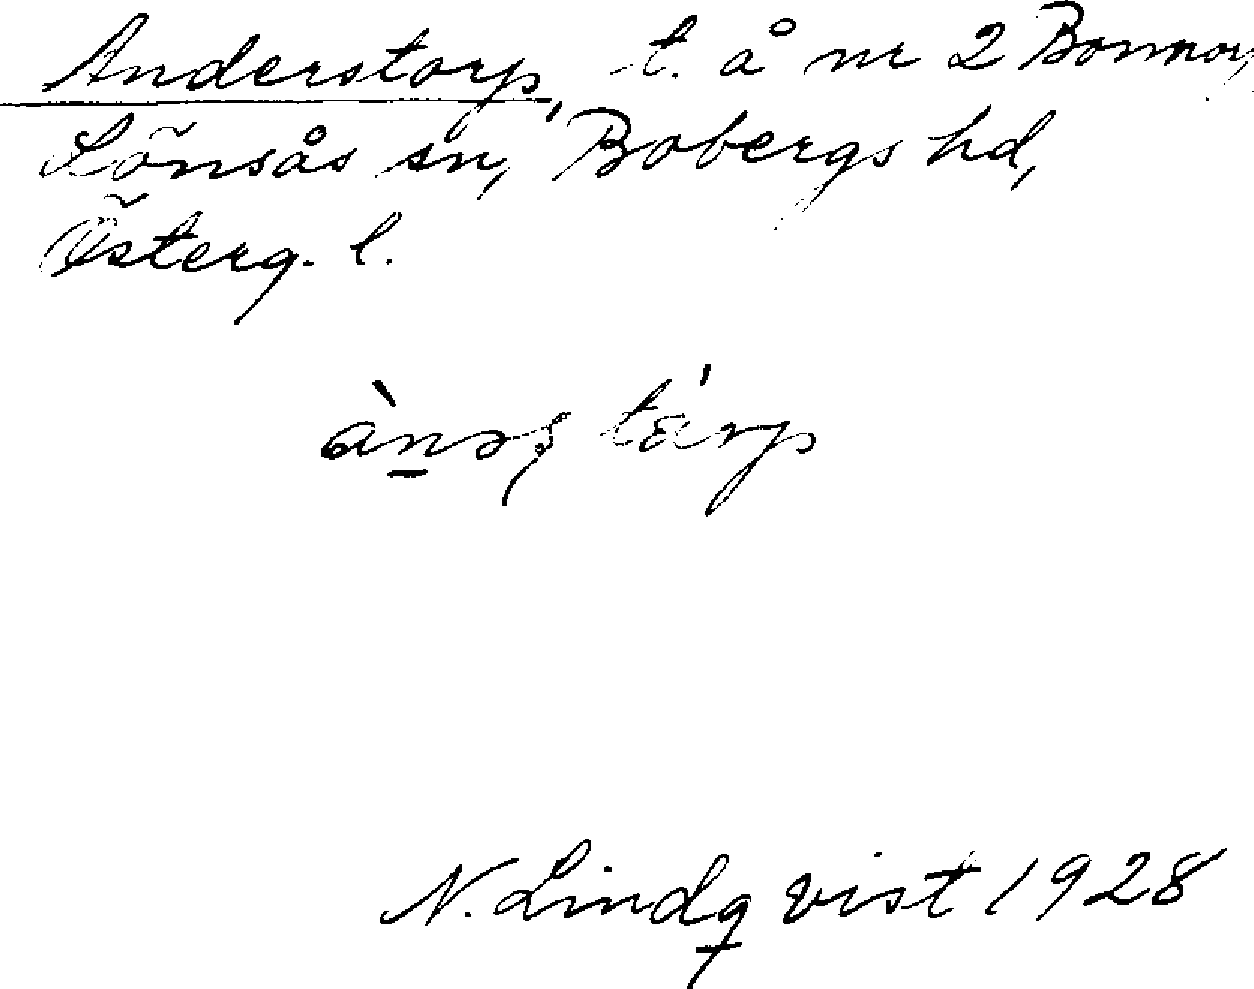 Anderstorp, t. å nr 2 Bonnorp,
Lönsås sn, Bobergs hd,
Österg. l.
N. Lindqvist 1928